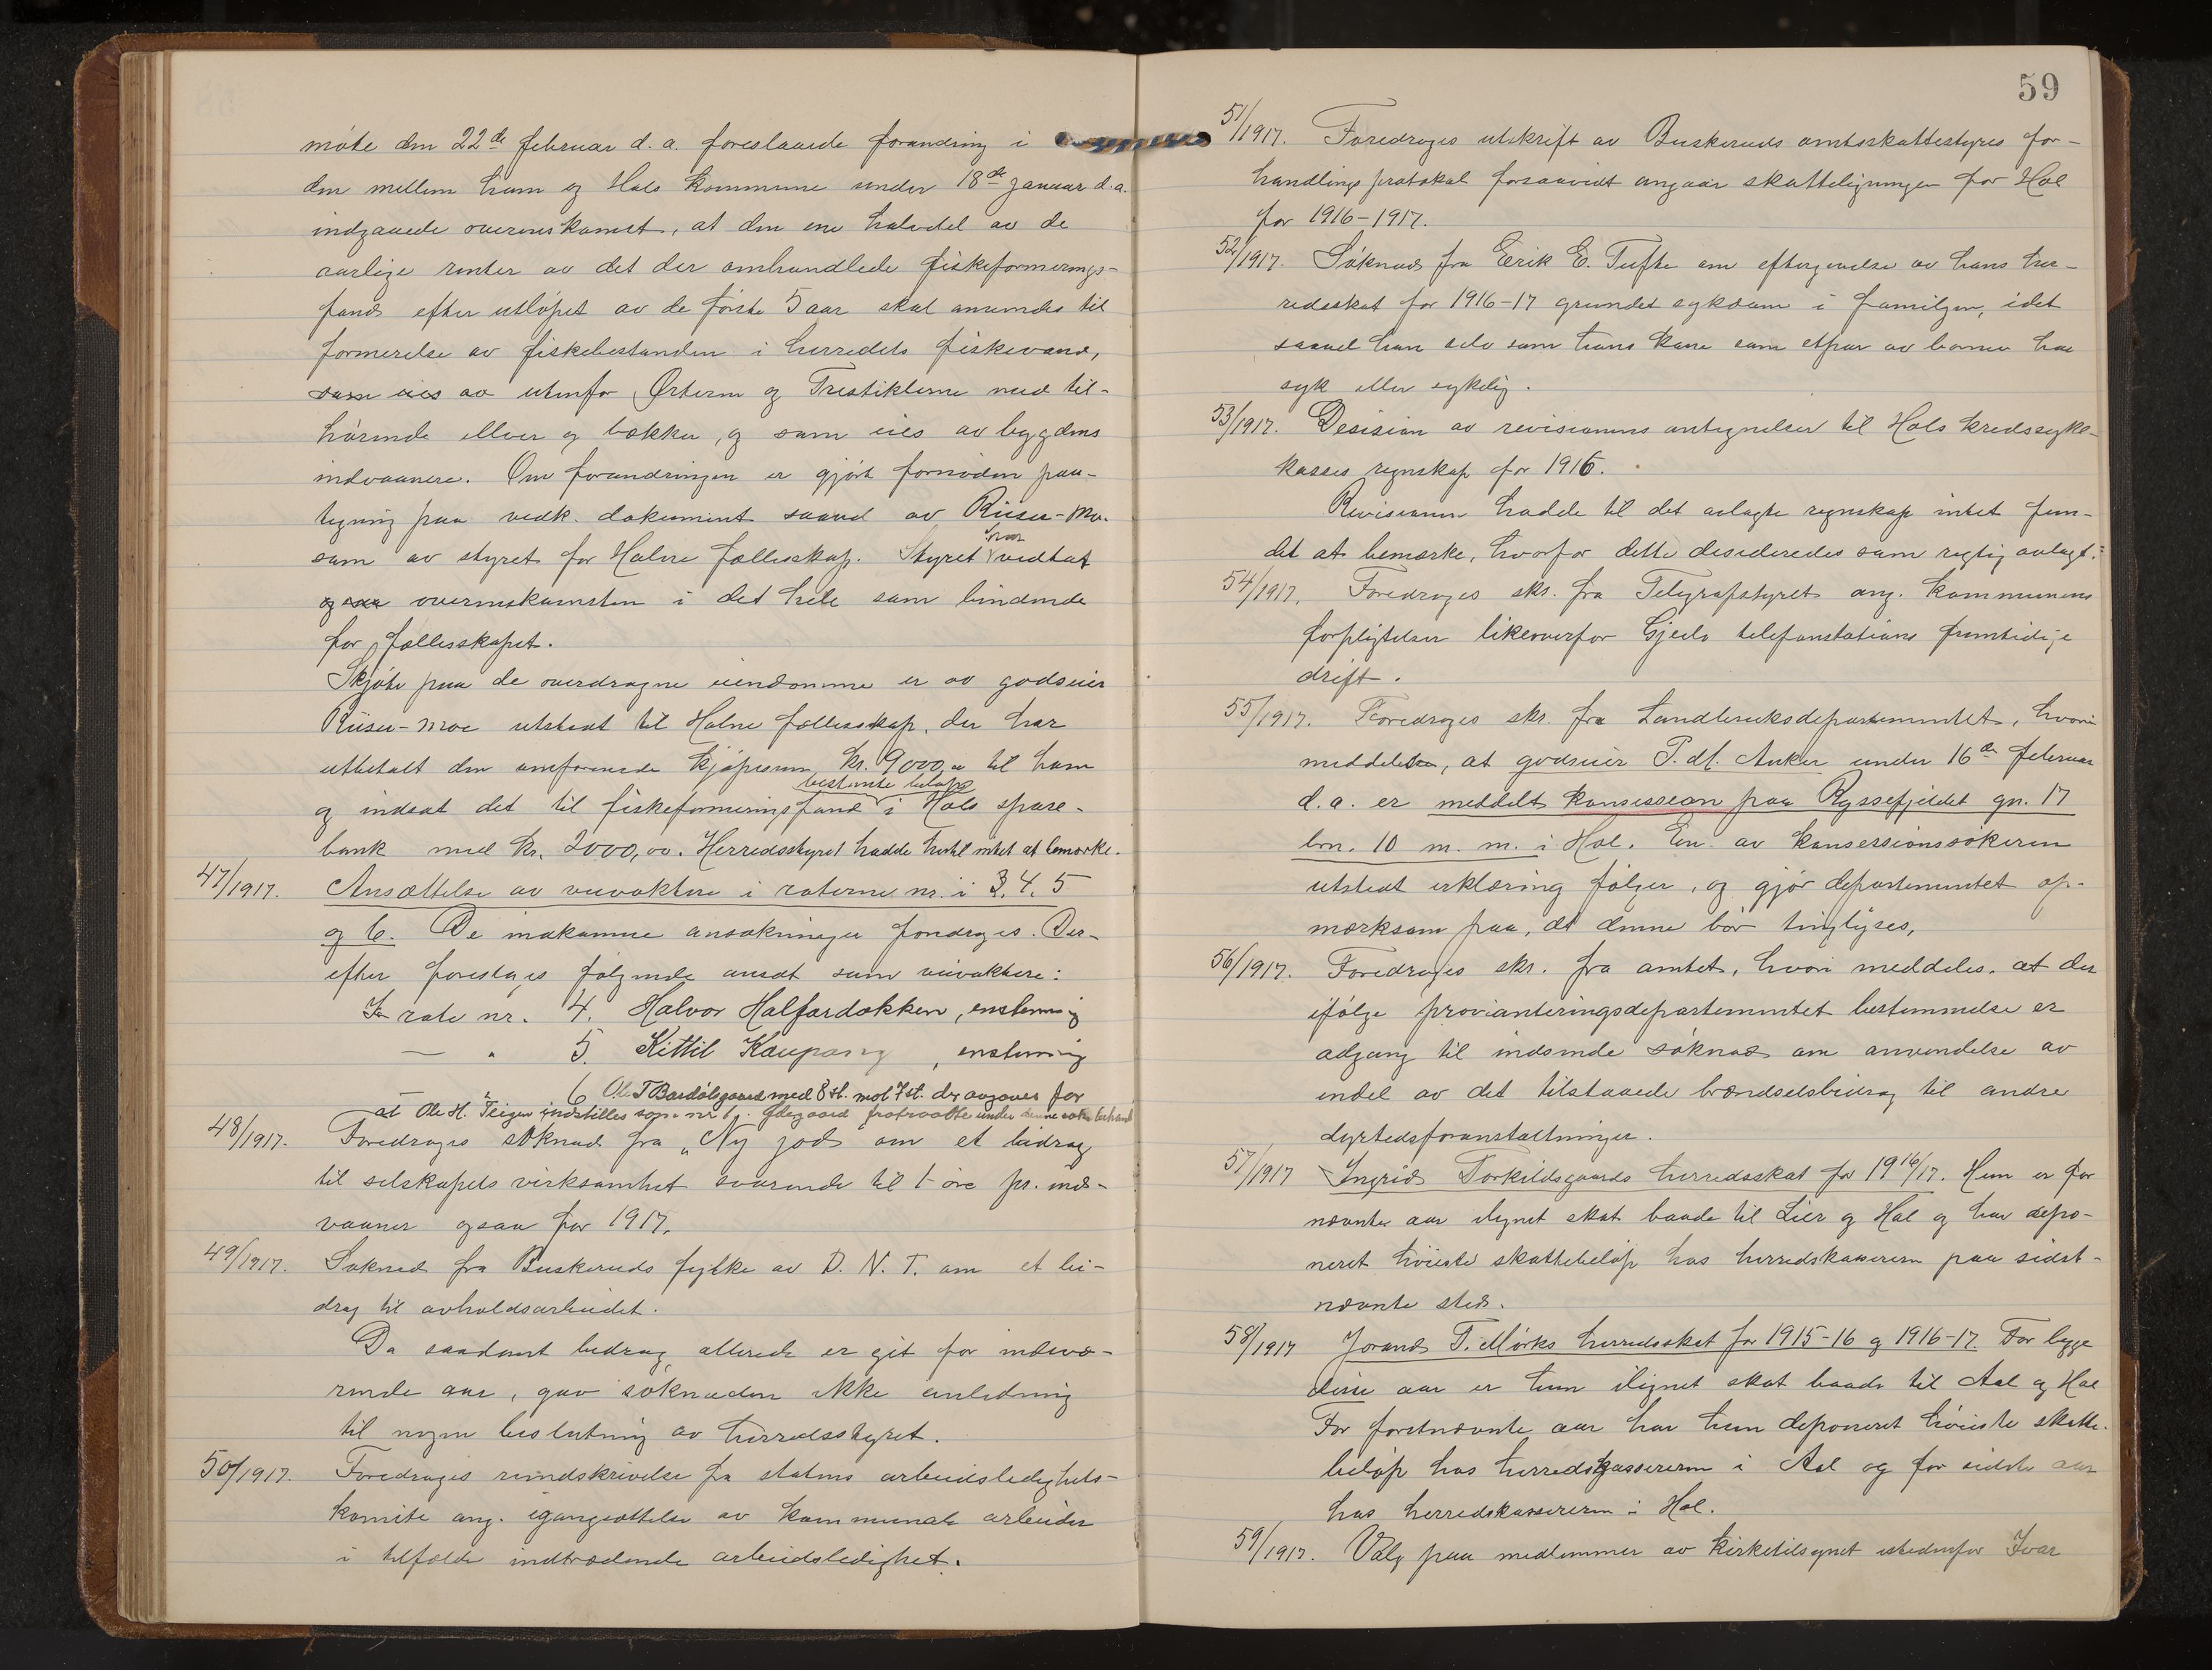 møte den 22de februar d.a. foreslaaede forandring i
den mellem ham og Hols kommune under 18de januar d.a.
indgaaede overenskomst, at den ene halvdel av de
aarlige renter av det der omhandlede fiskeformerings-
fond efter utløpet av de første 5 aar skal anvendes til
formerelse av fiskebestanden i herredets fiskevand,
som eies av utenfor Ørteren og Trestiklerne med til-
hørende elver og bækker, og som eies av bygdens
indvaanere. Om forandringen er gjort fornøden paa-
tegning paa vedk. dokument saavel av Riiser-Mo.
som av styret for Halne fællesskap. Styret har vedtat
overenskomsten i det hele som bindende
for fællesskapet.
Skjøte paa de overdragne eiendomme er av godseier
Riiser-Moe utstedt til Halne fællesskap, der har
utbetalt den omforenede kjøpesum kr. 9000,00 til ham
bestemte beløp
og indsat det til fiskeformeringsfond i Hols spare-
bank med kr. 2000,00. Herredsstyret hadde hertil intet at bemerke.
47/1917. Ansættelse av veivoktere i roterne nr. i 3. 4. 5
og 6. De inkomne ansøkninger foredroges. Der-
efter foresloges følgende ansat som veivoktere:
For rote nr. 4. Halvor Halfardokken, enstemmig
— " 5. Kittil Kaupang, enstemmig
— " 6 Ole T Bardølsgaard med 8 st. mot 7 st. der avgaves for
at Ole H. Teigen indstilles som nr 1. Ødegaard fratraadte under denne saks behand
48/1917. Foredroges søknad fra "Ny jod" om et bidrag
til selskapets virksomhet svarende til 1 øre pr. ind-
vaaner ogsaa for 1917.
49/1917. Søknad fra Buskeruds fylke av D. N. T. om et bi-
drag til avholdsarbeidet.
Da saadant bidrag allerede er git for indevæ-
rende aar, gav søknaden ikke anledning
til nogen beslutning av herredsstyret.
50/1917. Foredroges rundskrivelse fra statens arbeidsledighets-
komite ang. igangsættelse av kommunale arbeider
i tilfælde indtrædende arbeidsledighet.
59
51/1917. Foredroges utskrift av Buskeruds amtsskattestyres for-
handlingsprotokol forsaavidt angaar skatteligningen for Hol
for 1916-1917.
52/1917. Søknad fra Erik E. Tufte om eftergivelse av hans her-
redsskat for 1916-17 grundet sykdom i familjen, idet
saavel han selv som hans kone som etpar av barnene har
syk eller sykelig.
53/1917. Desision av revisionens antegnelser til Hols kredssyke-
kasses regnskap for 1916.
Revisionen hadde til det avlagte regnskap intet fun-
det at bemerke, hvorfor dette desideredes som rigtig avlagt.
54/1917. Foredroges skr. fra Telegrafstyret ang. kommunens
forpligtelser likeoverfor Gjeilo telefonstations fremtidige
drift.
55/1917. Foredroges skr. fra Landbruksdepartementet, hvori
meddeles, at godseier P. M. Anker under 16de februar
d.a. er meddelt konsession paa Ryssefjeldet gn. 17
brn. 10 m. m. i Hol. En av konsessionssøkeren
utstedt erklæring følger, og gjør departementet op-
merksom paa, at denne bør tinglyses.
56/1917. Foredroges skr. fra amtet, hvori meddeles, at der
ifølge provianteringsdepartementet bestemmelse er
adgang til indsende søknad om anvendelse av
endel av det tilstaaede brændselsbidrag til andre
dyrtidsforanstaltninger.
57/1917 Ingrid Torkildsgaards herredsskat for 1916/17. Hun er for
nævnte aar ilignet skat baade til Lier og Hol og har depo-
neret høieste skattebeløp hos herredskassereren paa sidst-
nævnte sted.
58/1917 Jorand T. Mørks herredsskat for 1915-16 og 1916-17. For begge
disse aar er hun ilignet skat baade til Aal og Hol
For førstnævnte aar har hun deponeret høieste skatte-
beløp hos herredskassereren i Aal og for sidste aar
hos herredskassereren i Hol.
59/1917. Valg paa medlemmer av kirketilsynet istedenfor Ivar